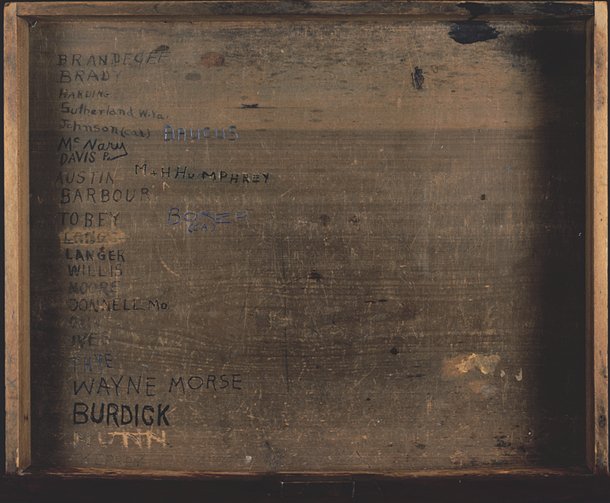 BRANDEGEE
BRADY
HARDING
Sutherland W.Va.
Johnson (Cal) BAUCUS
McNary
DAVIS Pa
AUSTIN M+H HUMPHREY
BARBOUR
TOBEY BOXER
(CA)
LANGER
WILLIS
MOORE
DONNELL Mo.
IVES
WAYNE MORSE
BURDICK
NUNN